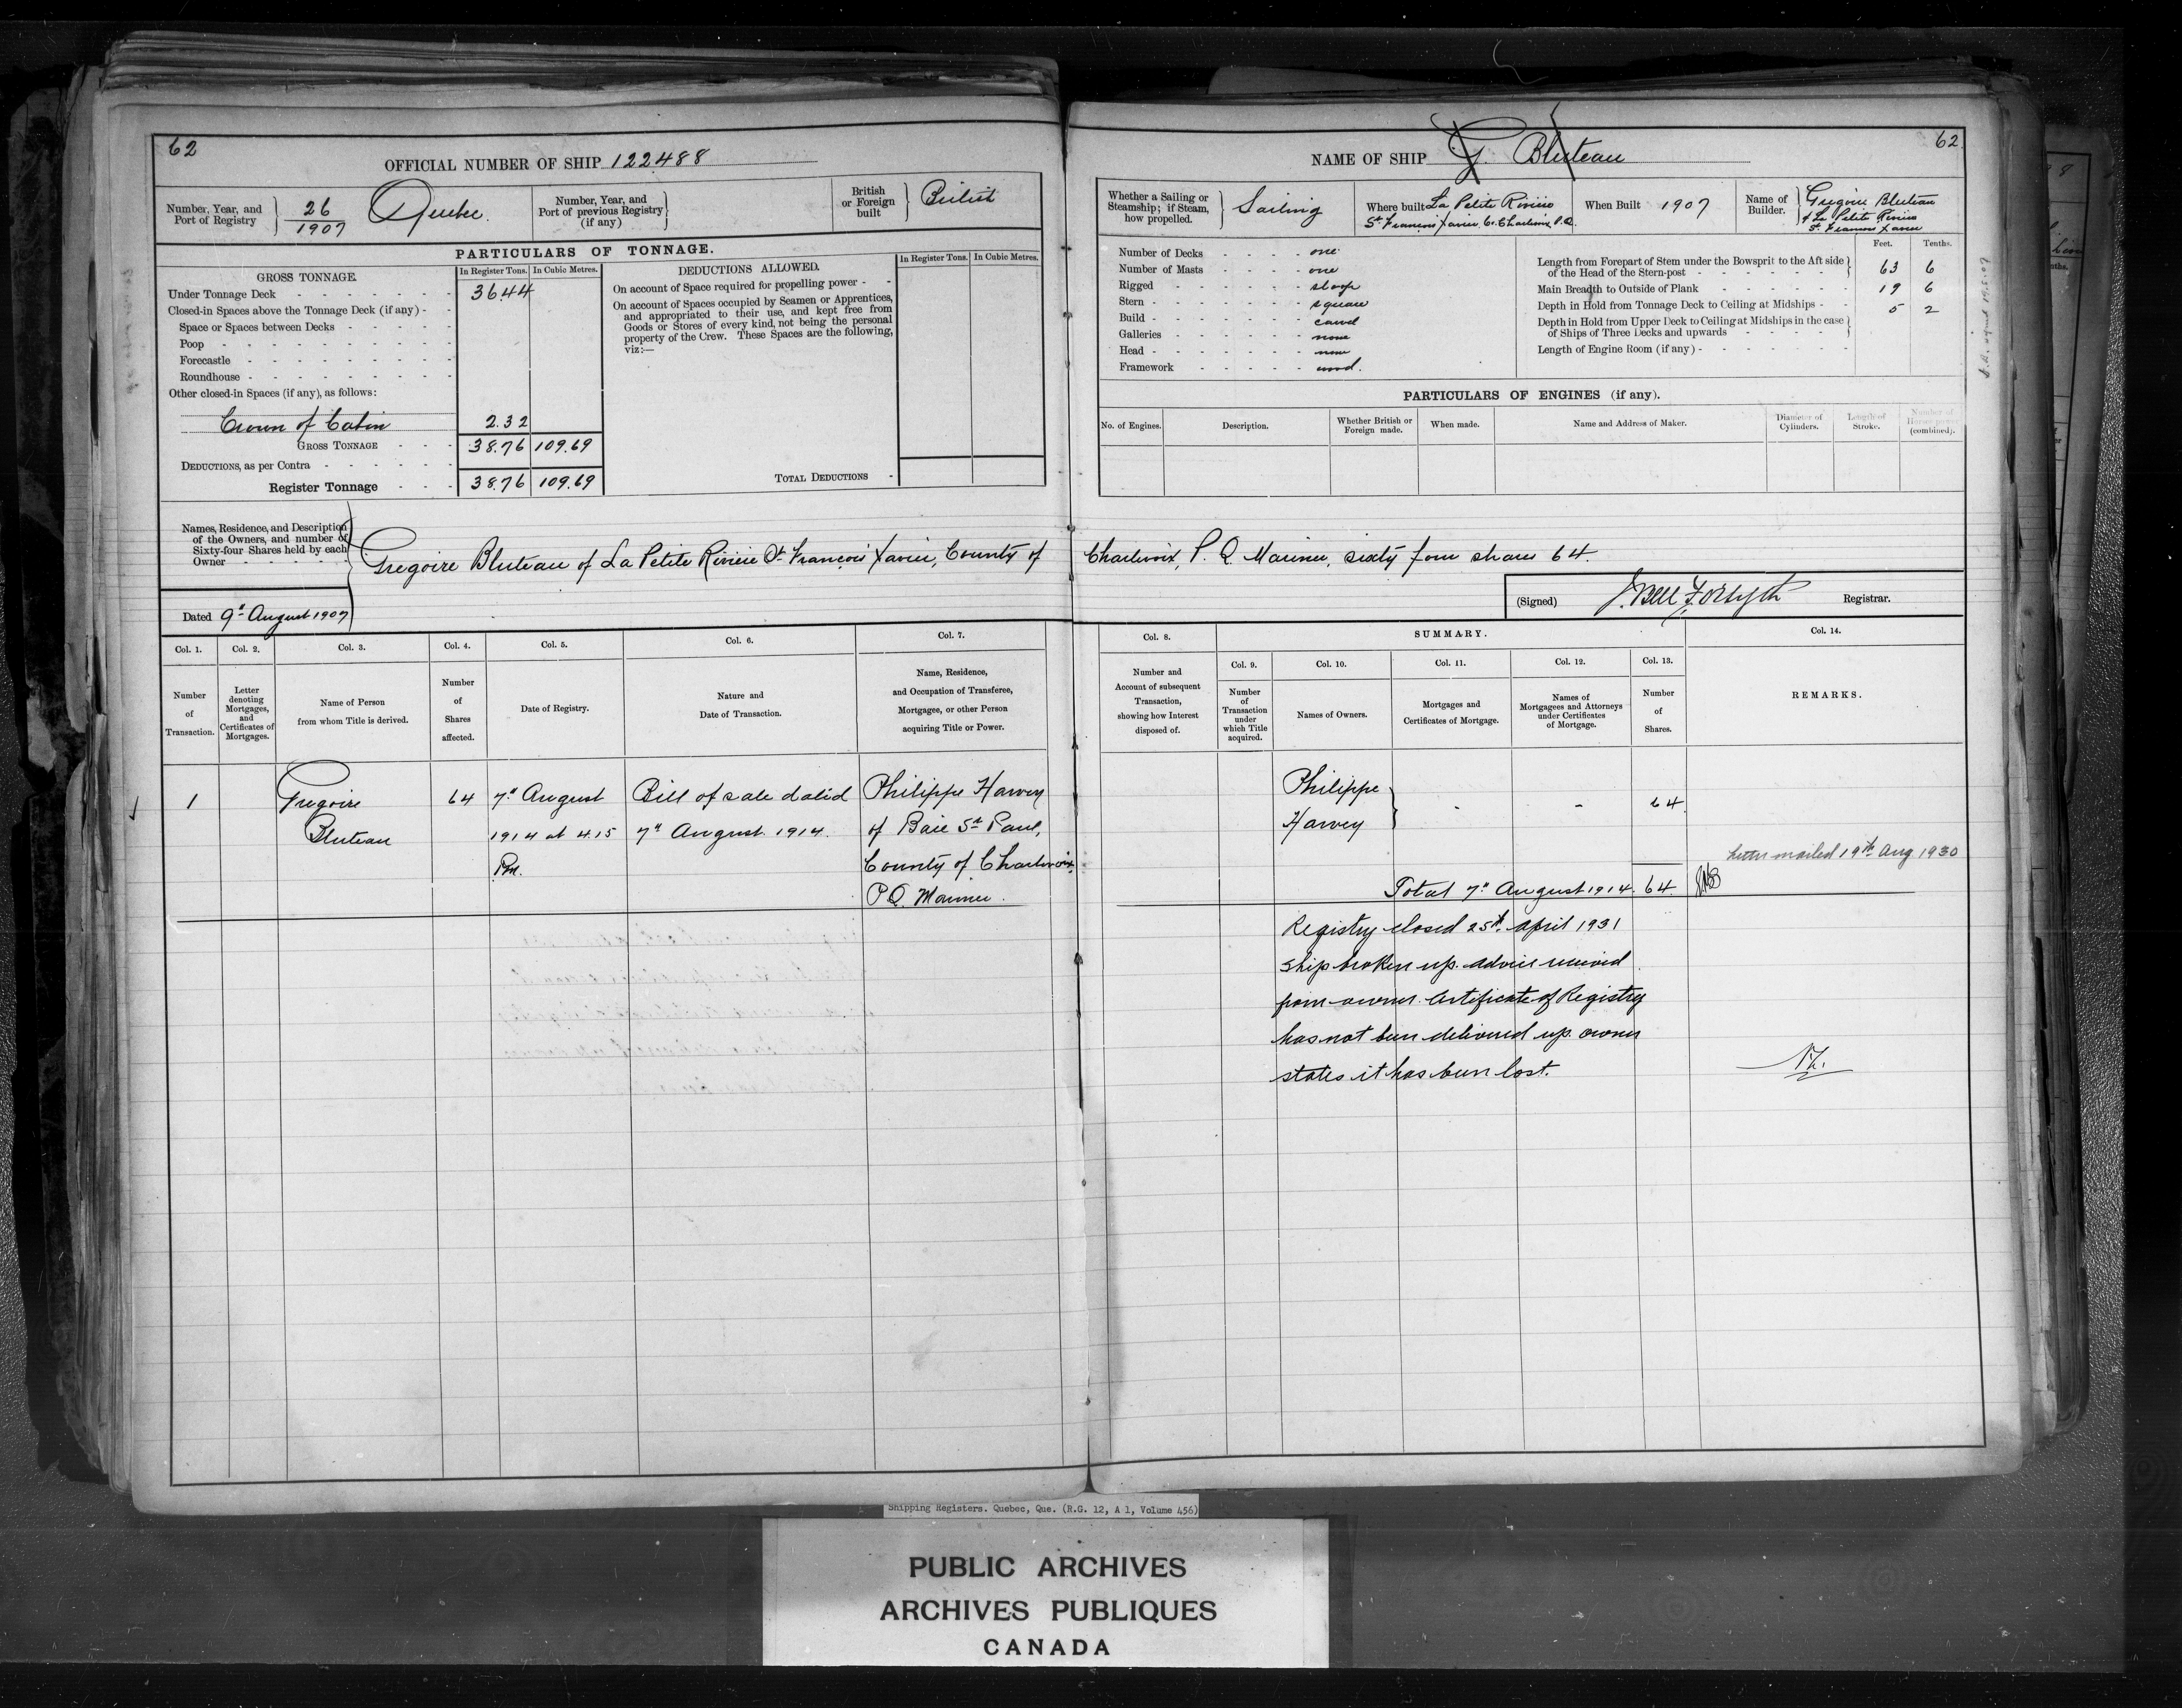 62
OFFICIAL NUMBER OF SHIP 122488
Number, Year, and Port of Registry
26
1907
Quebec.
Number, Year, and Port of previous Registry (if any)
British or Foreign built
British
PARTICULARS OF TONNAGE.
GROSS TONNAGE.
In Register Tons.
In Cubic Metres.
Under Tonnage Deck
36.44
Closed-in Spaces above the Tonnage Deck (if any)
Space or Spaces between Decks
Poop
Forecastle
Roundhouse
Other closed-in Spaces (if any), as follows:
Crown of Cabin 2.32
GROSS TONNAGE 38.76 109.69
DEDUCTIONS, as per Contra
Register Tonnage 38.76 109.69
DEDUCTIONS ALLOWED.
In Register Tons.
In Cubic Metres.
On account of Space required for propelling power
On account of Spaces occupied by Seamen or Apprentices,
and appropriated to their use, and kept free from
Goods or Stores of every kind, not being the personal
property of the Crew. These Spaces are the following,
viz:—
TOTAL DEDUCTIONS
Names, Residence, and Description
of the Owners, and number of
Sixty-four Shares held by each
Owner
Gregoire Bluteau of La Petite Riviere St. François Xavier, County of
Dated 9th August 1907
Col. 1.
Number
of
Transaction.
Col. 2.
Letter
denoting
Mortgages,
and
Certificates of
Mortgages.
Col. 3.
Name of Person
from whom Title is derived.
Col. 4.
Number
of
Shares
affected.
Col. 5.
Date of Registry.
Col. 6.
Nature and
Date of Transaction.
Col. 7.
Name, Residence,
and Occupation of Transferee,
Mortgagee, or other Person
acquiring Title or Power.
1
Gregoire
Bluteau
64
7th August
1914 at 4.15
Pm.
Bill of sale dated
7th August 1914.
Philippe Harvey
of Baie St. Paul,
County of Charlevoix,
P.Q. Mariner.
62.
NAME OF SHIP G. Bluteau
Whether a Sailing or
Steamship; if Steam,
how propelled.
Sailing
Where built La Petite Riviere
St. François Xavier Co. Charlevoix P.Q.
When Built 1907
Name of
Builder.
Gregoire Bluteau
of La Petite Riviere
St. Francois Xavier
Number of Decks one
Number of Masts one
Rigged sloop
Stern square
Build carvel
Galleries none
Head none
Framework wood.
Feet. Tenths.
Length from Forepart of Stem under the Bowsprit to the Aft side
of the Head of the Stern-post 63 6
Main Breadth to Outside of Plank 19 6
Depth in Hold from Tonnage Deck to Ceiling at Midships 5 2
Depth in Hold from Upper Deck to Ceiling at Midships in the case
of Ships of Three Decks and upwards
Length of Engine Room (if any)
PARTICULARS OF ENGINES (if any).
No. of Engines.
Description.
Whether British or
Foreign made.
When made.
Name and Address of Maker.
Diameter of
Cylinders.
Length of
Stroke.
Number of
Horse power
(combined).
Charlevoix, P.Q. Mariner, sixty four shares 64.
(Signed) J. Bell Forsyth Registrar.
Col. 8.
Number and
Account of subsequent
Transaction,
showing how Interest
disposed of.
SUMMARY.
Col. 9.
Number
of
Transaction
under
which Title
acquired.
Col. 10.
Names of Owners.
Col. 11.
Mortgages and
Certificates of Mortgage.
Col. 12.
Names of
Mortgagees and Attorneys
under Certificates
of Mortgage.
Col. 13.
Number
of
Shares.
Col. 14.
REMARKS.
Philippe
Harvey
-
-
64
Letter mailed 19th Aug 1930
Total 7th August 1914. 64.
Registry closed 25th April 1931
Ship broken up. Advice received
from owner. Certificate of Registry
has not been delivered up. owner
states it has been lost.
Shipping Registers. Quebec, Que. (R.G. 12, A 1, Volume 456)
PUBLIC ARCHIVES
ARCHIVES PUBLIQUES
CANADA